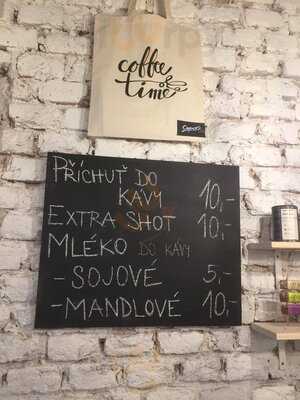 coffee
time
PŘÍCHUŤ DO
KÁVY 10,-
EXTRA SHOT 10,-
MLÉKO DO KÁVY
- SOJOVÉ 5,-
- MANDLOVÉ 10,-